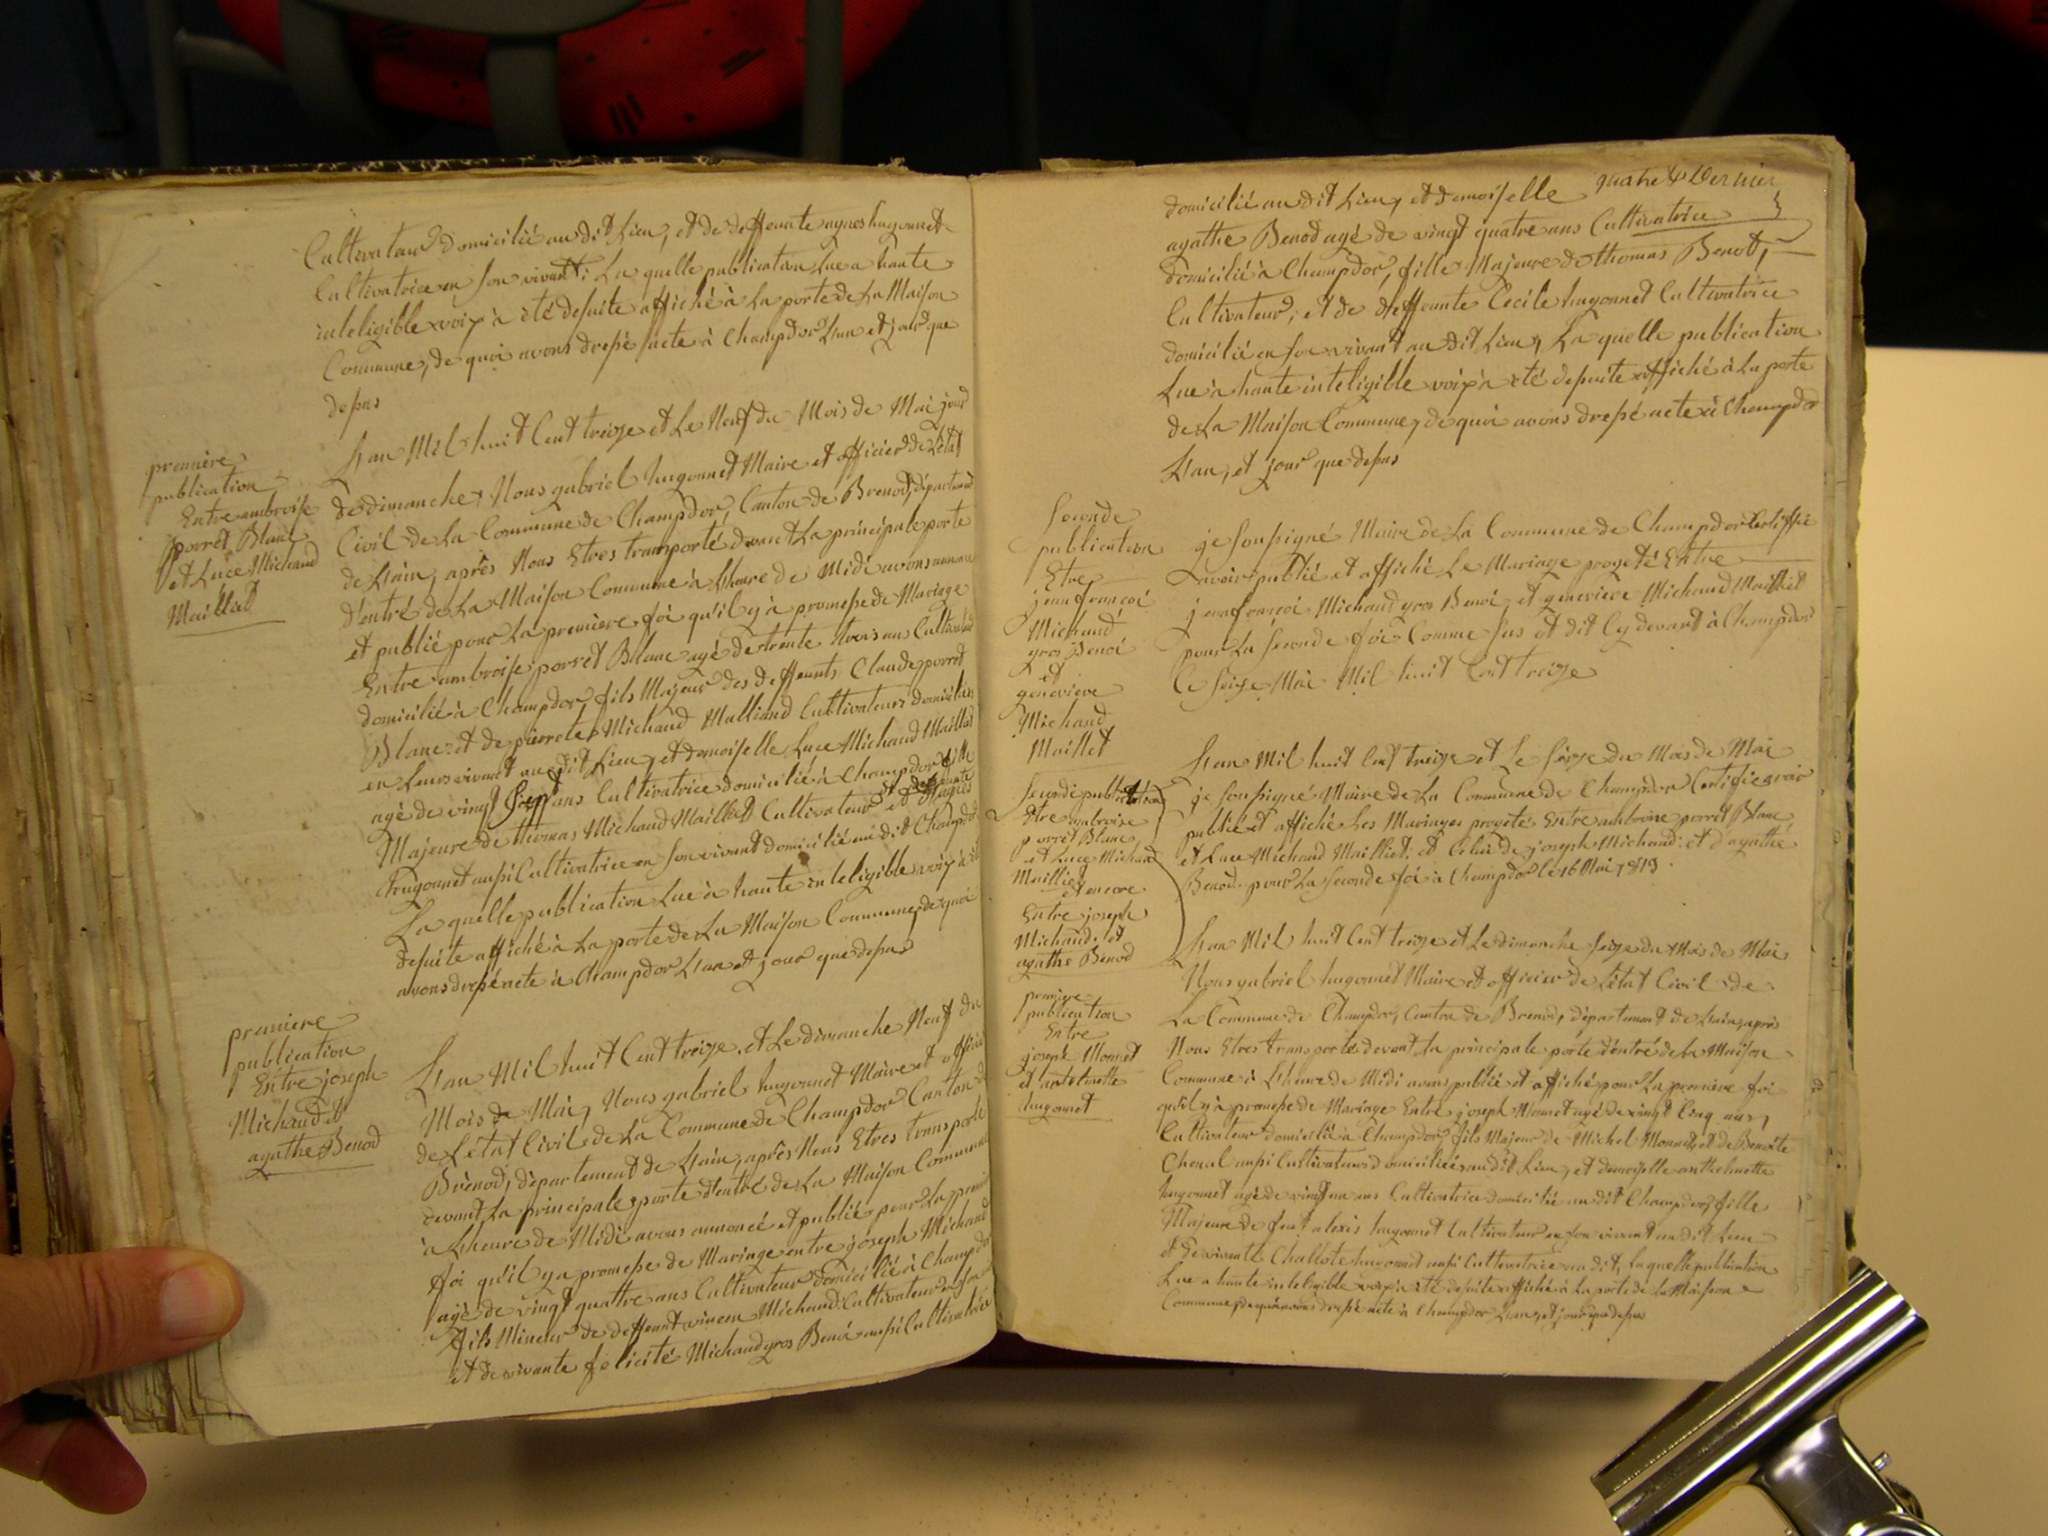 Cultivateur domicilié au dit Lieu, et de deffeunte agnes hugonnet
Cultivatrice en Son vivant; La quelle publication Lue a haute
inteligible voix à été desuite affiché à La porte de La Maison
Commune, de quoi avons dressé acte à Champdor L'an et jour que
dessus
première
publication
Entre ambroise
porret Blanc
et Luce Michaud
Mailliet
L'an Mil huit Cent treize et Le Neuf du Mois de Mai jour
de dimanche, Nous gabriel hugonnet Maire et officier de L'état
Civil de La Commune de Champdor, Canton de Brenod, département
de L'ain, après Nous Etres transporté devant La principale porte
d'entré de La Maison Commune à L'heure de Midi avons annoncé
et publié pour La première foi qu'il y à promesse de Mariage
Entre ambroise porret Blanc agé de trente trois ans Cultivateur
domicilié à Champdor, fils Majeur des deffeunts Claude porret
Blanc et de pierrete Michaud Malliand Cultivateurs domiciliés
en Leurs vivant au dit Lieu, et demoiselle Luce Michaud Mailliet
agé de vingt Sept ans Cultivatrice domicilié à Champdor fille
Majeure de thomas Michaud Mailliet Cultivateur et de deffeunte Agnès
hugonnet aussi Cultivatrice en Son vivant domicilié au dit Champdor
La quelle publication Lue à haute inteligible voix à été
desuite affiché à La porte de La Maison Commune, de quoi
avons dressé acte à Champdor L'an et jour que dessus
première
publication
Entre joseph
Michaud et
agathe Benod
L'an Mil huit Cent treize, et Le dimanche Neuf du
Mois de Mai, Nous gabriel hugonnet Maire et officier
de L'état Civil de La Commune de Champdor Canton de
Brénod, département de L'ain, après Nous Etres transporté
devant La principale porte d'entré de La Maison Commune
à L'heure de Midi avons annoncé et publié pour La premier
foi qu'il y a promesse de Mariage entre joseph Michaud
agé de vingt quattre ans Cultivateur domicilié à Champdor
fils Mineur de deffeunt Michaud Cultivateur en Son
et de vivante felicité Michaud gros Benoi aussi Cultivatrice
quatre & Dernier
domicilié au dit Lieu, et demoiselle
agathe Benod agé de vingt quatre ans Cultivatrice
domicilié à Champdor, fille Majeure de thomas Benod,
Cultivateur, et de deffeunte Cecile hugonnet Cultivatrice
domicilié en Son vivant au dit Lieu, La quelle publication
Lue à haute inteligible voix à été desuite affiché à La porte
de La Maison Commune, de quoi avons dressé acte à Champdor
L'an, et jour que dessus
Seconde
publication
Etre
jean françoi
Michaud
gros Benoi
et
genevieve
Michaud
Maillet
je Soussigné Maire de La Commune de Champdor Certiffie
avoir publié et affiché Le Mariage progeté Entre
jean françoi Michaud gros Benoi, et genevieve Michaud Maillet
pour La Seconde foi Comme Sus et dit Cy devant à Champdor
Ce Seize Mai Mil huit Cent treize
Seconde publication
Etre ambroise
porret Blanc
et Luce Michaud
Mailliet
et encore
Entre joseph
Michaud et
agathe Benod
L'an Mil huit Cent treize et Le Seize du Mois de Mai
je Soussigné Maire de La Commune de Champdor Certifie avoir
publié et affiché Les Mariages progetés Entre ambroise porret Blanc
et Luce Michaud Mailliet. et Celui de joseph Michaud. et d'agathe
Benod. pour La Seconde foi à Champdor le 16 Mai 1813.
première
publication
Entre
joseph Monnet
et anthelmette
hugonnet
L'an Mil huit Cent treize et Le dimanche Seize du Mois de Mai
Nous gabriel hugonnet Maire et officier de L'état Civil de
La Commune de Champdor, Canton de Brenod, département de L'ain, après
Nous Etres transporté devant La principale porte d'entré de La Maison
Commune à L'heure de Midi avons publié et affiché pour La première foi
qu'il y à promesse de Mariage Entre joseph Monnet agé de vingt Cinq ans,
Cultivateur domicilié à Champdor, fils Majeur de Michel Monnet, et de Benoite
Chenal aussi Cultivateurs domiciliés au dit Lieu, et demoiselle anthelmette
hugonnet agé de vingt un ans Cultivatrice domicilié au dit Champdor, fille
Majeure de feu alexis hugonnet Cultivateur en Son vivant au dit Lieu
et de vivante hugonnet aussi Cultivatrice au dit, La quelle publication
Lue a haute inteligible voix à été desuite affiché à La porte de La Maison
Commune, de quoi avons dressé acte à Champdor L'an, et jour que dessus